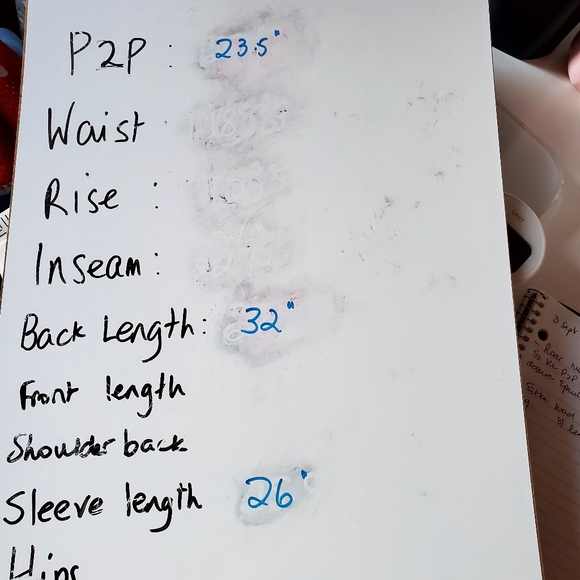 P2P : 23.5"
Waist
Rise :
Inseam :
Back Length : 32"
Front length
Shoulder back
Sleeve length 26"
Hips
3 Sept